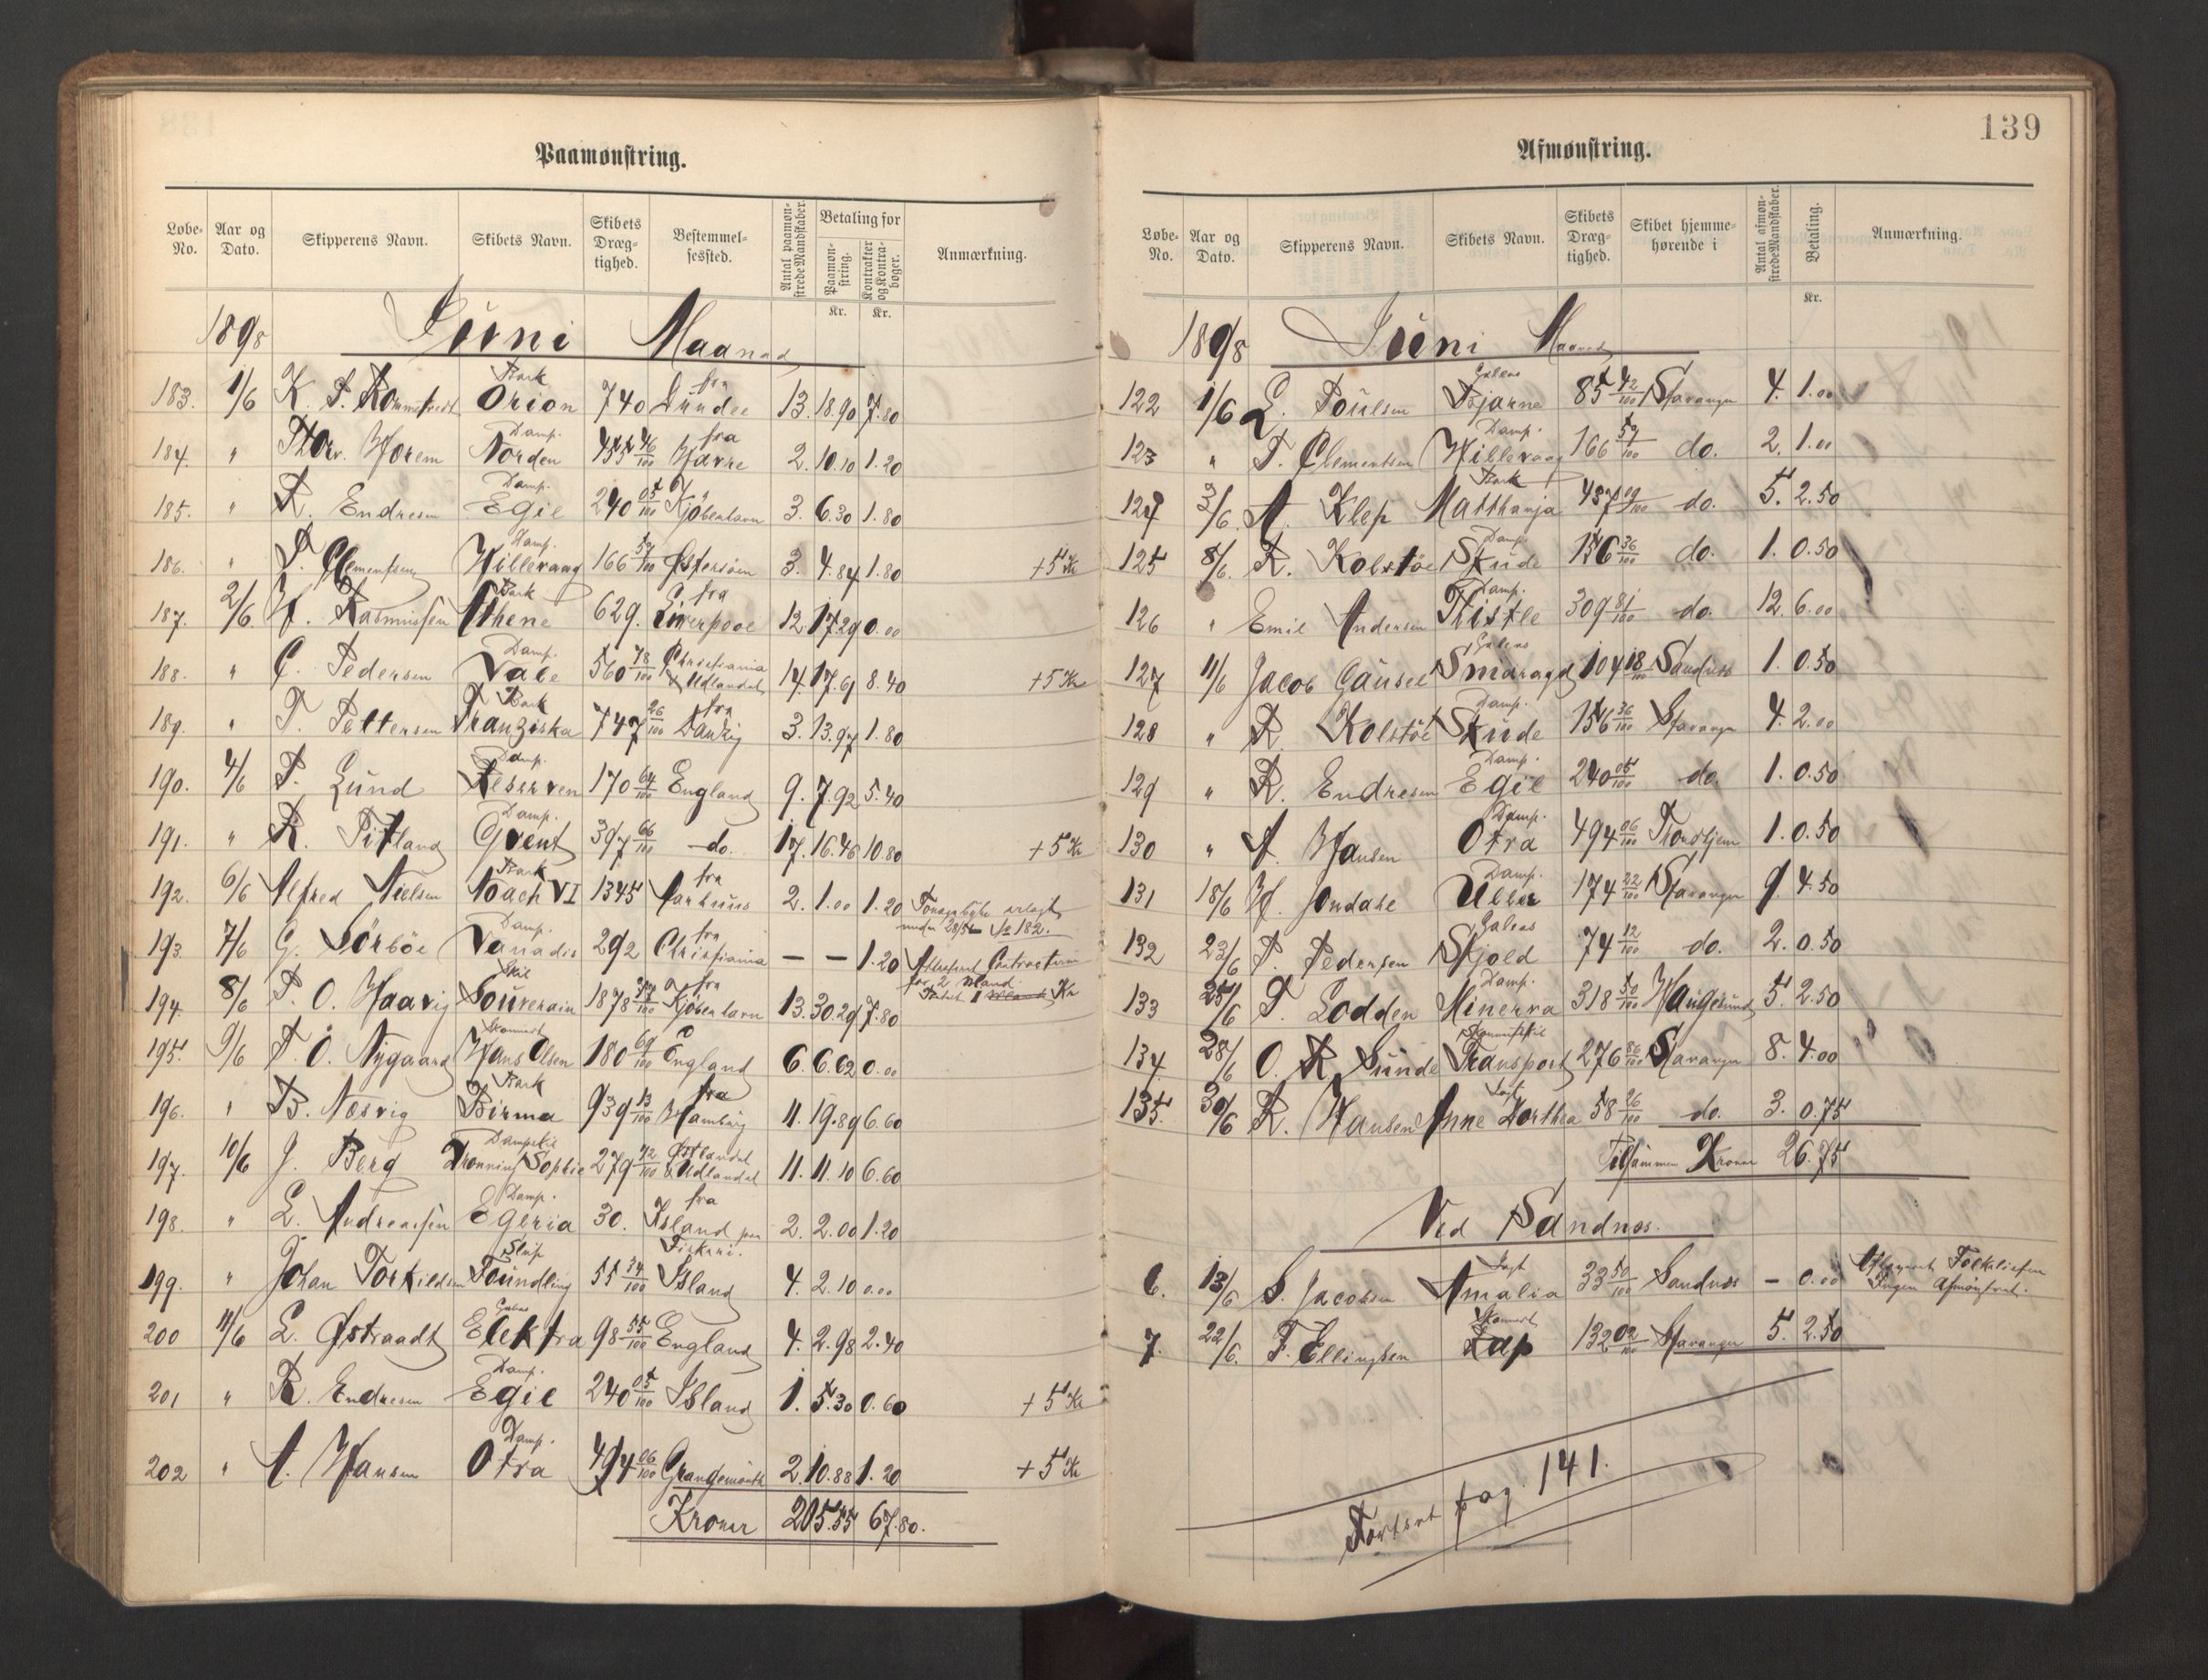 Paamønstring.
Løbe-No. Aar og Dato. Skipperens Navn. Skibets Navn. Skibets Dræg-tighed. Bestemmel-sessted. Antal paamøn-strede Mandskaber. Betaling for Paamøn-string. Kr. Kontrakter og Kontra-bøger. Kr. Anmærkning.
1898 Juni Maaned
183. 1/6 K. T. Rommetvedt Bark Orion 740 fra Dundee 13. 18.90 7.80
184. " Thorv. Horem Damp. Norden 455 46/100 fra Havre 2. 10.10 1.20
185. " R. Endresen Damp. Egil 240 05/100 Kjöbenhavn 3. 6.30 1.80
186. " T. Clementsen Damp. Hillevaag 166 59/100 Østersöen 3. 4.84 1.80 +5 Kr
187. 2/6 H. Rasmussen Bark Athene 629. fra Liverpool 12 17.29 0.00
188. " C. Pedersen Damp. Vale 560 78/100 Christiania & Udlandet 14. 17.61 8.40 +5 Kr
189. " T. Pettersen Bark Franziska 747 26/100 fra Danzig 3. 13.97 1.80
190. 4/6 T. Lund Damp. Reserven 170 64/100 England 9. 7.92 5.40
191. " R. Pitland Damp. Gvent 397 66/100 do. 17. 16.46 10.80 +5 Kr
192. 6/6 Alfred Nielsen Bark Noach VI 1345 fra Aarhuus 2. 1.00 1.20 under 28/5 No 182.
193. 7/6 G. Sörböe Damp. Vanadis 292 fra Christiania — — 1.20 Contracten for 2 Mand.
194. 8/6 T. O. Haavig Skib Souverain 1878 37/100 fra Kjöbenhavn 13. 30.29 7.80
195. 9/6 T. O. Nygaard Skonnert Hans Olsen 180 69/100 England 6. 6.62 0.00
196. " B. Næsvig Bark Birma 939 13/100 fra Hamburg 11. 19.89 6.60
197. 10/6 J. Berg Dampskib Dronning Sophie 279 42/100 Østlandet & Udlandet 11. 11.10 6.60
198. " L. Andreassen Damp. Egeria 30. fra Island paa Fiskeri. 2. 2.00 1.20
199. " Johan Torkildsen Slup Foundling 55 34/100 Island 4. 2.10 0.00
200 11/6 L. Østraadt Galeas Elektra 98 55/100 England 4. 2.98 2.40
201 " R. Endresen Damp. Egil 240 05/100 Island 1. 5.30 0.60 +5 Kr
202 " A. Hansen Damp. Otra 494 06/100 Grangemouth 2. 10.88 1.20 +5 Kr
Kroner 205.55 67.80.
139
Afmønstring.
Løbe-No. Aar og Dato. Skipperens Navn. Skibets Navn. Skibets Dræg-tighed. Skibet hjemme-hørende i Antal afmøn-strede Mandskaber. Betaling. Kr. Anmærkning.
1898 Juni Maaned
122 1/6 L. Poulsen Galeas Bjarne 85 42/100 Stavanger 4. 1.00
123 " T. Clementsen Damp. Hillevaag 166 59/100 do. 2. 1.00
124 3/6 A. Klep Bark Matthanja 487 09/100 do. 5. 2.50
125 8/6. R. Kolstöe Damp. Skude 156 36/100 do. 1. 0.50
126 " Emil Andersen Damp. Thistle 309 81/100 do. 12. 6.00
127 11/6 Jacob Gausel Galeas Smaragd 104 18/100 Sandnæs 1. 0.50
128 " R. Kolstöe Damp. Skude 156 36/100 Stavanger 4. 2.00
129 " R. Endresen Damp. Egil 240 05/100 do. 1. 0.50
130 " A. Hansen Damp. Otra 494 06/100 Trondhjem 1. 0.50
131 18/6 H. Jondahl Damp. Uller 174 22/100 Stavanger 9. 4.50
132 23/6 P. Pedersen Galeas Skjold 74 12/100 do. 2. 0.50
133 25/6 T. Lodden Damp. Minerva 318 50/100 Haugesund 5. 2.50
134 28/6 O. R. Sunde Transport 276 86/100 Stavanger 8. 4.00
135. 30/6 R. Hansen Jagt Anne Dorthea 58 26/100 do. 3. 0.75
Tilsammen Kroner 26.75
Ved Sandnæs.
6. 13/6 S. Jacobsen Jagt Amalia 33 50/100 Sandnæs — 0.00 Ingen Afmönstret.
7. 22/6. F. Ellingsen Skonnert Lap 132 02/100 Stavanger 5. 2.50
Fortsat pag. 141.